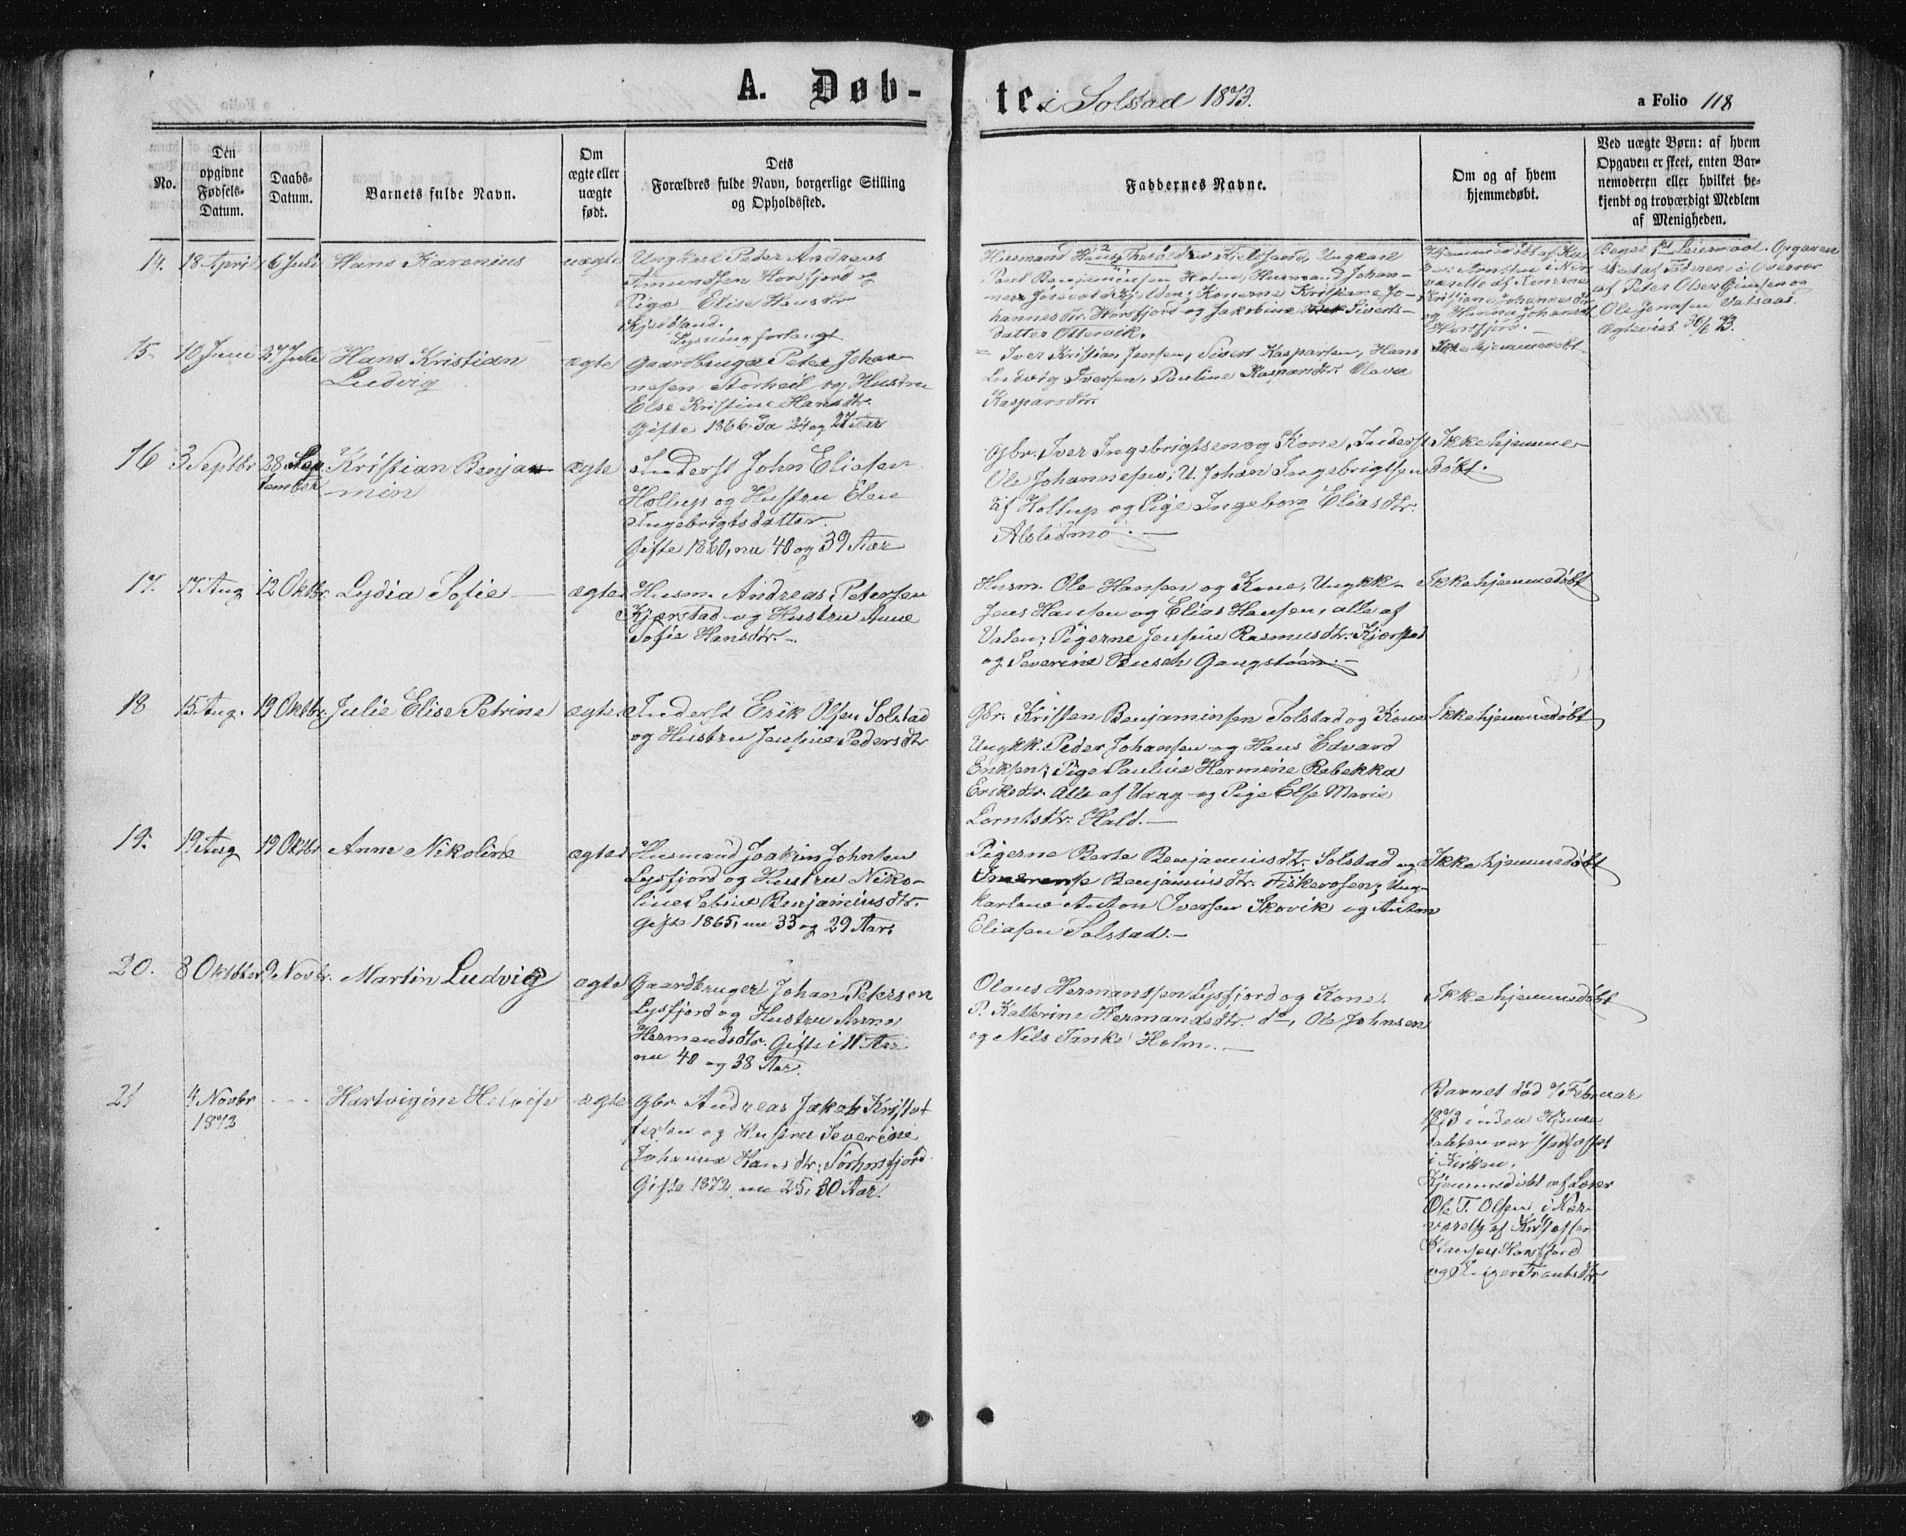 A. Døb-
te. i Solstad 1873.
a Folio 118
No.
Den opgivne Fødsels-Datum.
Daabs-Datum.
Barnets fulde Navn.
Om ægte eller uægte født.
Dets
Forældres fulde Navn, borgerlige Stilling
og Opholdssted.
Faddernes Navne.
Om og af hvem
hjemmedøbt.
Ved uægte Børn: af hvem
Opgaven er skeet, enten Bar-
nemoderen eller hvilket be-
kjendt og troværdigt Medlem
af Menigheden.
14. 18 April 6 Juli Hans Karenius uægte
Ungkarl Peter Andreas
Amundsen Horsfjord og
Pige Elise Hansdtr
Lysning forlangt
Paul Benjaminsen Holm, Husmand Johan-
hannesdtr. Horsfjord og Jakobine Siverts-
datter Ottervik.
Kristiane Johannesdtr
Horsfjord.
af Peter Olsen
Ole Jensen
15. 10 Juni 27 Juli Hans Kristian
Ludvig
ægte
Gaardbruger Peter Johan-
nesen Storheil og Hustru
Else Kristine Hansdtr.
Gifte 1866. Da 24 og 27 Aar
Iver Kristian Jensen, Sivert Kaspersen, Hans
Ludvig Iversen, Pauline Kaspersdtr. Olava
Kaspersdtr.
Ikke hjemmedøbt
16 3 Septbr 28 Sep
tember
Kristian Benja-
min
ægte
Inderst John Eliasen
Holtup og Hustru Elen
Ingebrigtsdatter.
Gifte 1860, nu 40 og 39 Aar
Gbr. Iver Ingebrigtsen og Kone, Inderst
Ole Johannesen; U. Johan Ingebrigtsen
af Holtup og Pige Ingeborg Eliasdtr.
Alstedmo. —
Ikke hjemme-
døbt.
17. 17 Aug 12 Oktbr. Lydia Sofie — ægte
Husm. Andreas Petersen
Kjærstad og Hustru Anne
Sofie Hansdtr. —
Husm. Ole Hansen og Kone, Ungkk-
Jens Hansen og Elias Hansen, alle af
Valen; Pigerne Jensine Rasmusdtr. Kjærstad
og Severine Busch Gangstøen. —
Ikke hjemmedøbt
18 15 Aug. 19 Oktbr. Julie Elise Petrine ægte
Inderst Erik Olsen Solstad
og Hustru Jensine Pedersdtr
Gbr. Kristen Benjaminsen Solstad og Kone
Ungkk. Peder Johansen og Hans Edvard
Eriksen; Pige Pauline Hermine Rebekka
Eriksdtr. Alle af Vaag og Pige Else Marie
Lorntsdtr. Hald. —
Ikke hjemmedøbt
19. 19 Aug 19 Oktbr Anne Nikoline ægte
Husmand Joakim Johnsen
Lysfjord og Hustru Niko-
line Sebine Benjaminsdtr.
Gifte 1865, nu 33 og 29 Aar.
Pigerne Berte Benjaminsdtr. Solstad og
Benjaminsdtr. Fiskerosen; Ung-
karlene Anton Iversen Skovik og Anton
Eliasen Solstad. —
Ikke hjemmedøbt
20. 8 Oktober 9 Novbr. Martin Ludvig ægte
Gaardbruger Johan Petersen
Lysfjord og Hustru Anne
Hermandsdtr. Gifte i 11 Aar
nu 40 og 38 Aar.
Olaus Hermansen Lysfjord og Kone.
P. Katherine Hermandsdtr. do, Ole Johnsen
og Nils Tanke Holm. —
Ikke hjemmedøbt
21 4 Novbr
1872
- - - Hartvigine Helvise ægte
Gbr. Andreas Jakob Kristof
fersen og Hustru Severine
Johanna Hansdtr, Sørhorsfjord.
Gifte 1872, nu 25, 30 Aar.
Barnet død Februar
1873 inden Hjemme
daaben var stadfæstet
i Kirken.
Hjemmedøbt af Lærer
Ole T. Olsen i Nær-
værelse af Kristoffer
Klausen Horsfjord
og